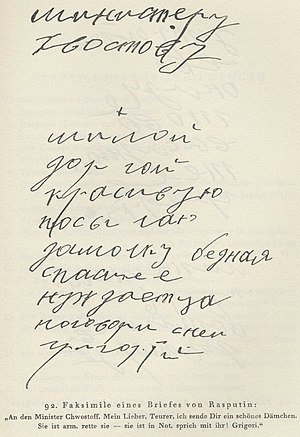 министеру
хвостову
+
милой
доргой
красивую
посылаю
дамочку бедная
спасие е
нуждаетца
поговори с ней
григорий
92. Faksimile eines Briefes von Rasputin:
„An den Minister Chwostoff. Mein Lieber, Teurer, ich sende Dir ein schönes Dämchen.
Sie ist arm. rette sie — sie ist in Not. sprich mit ihr! Grigori."